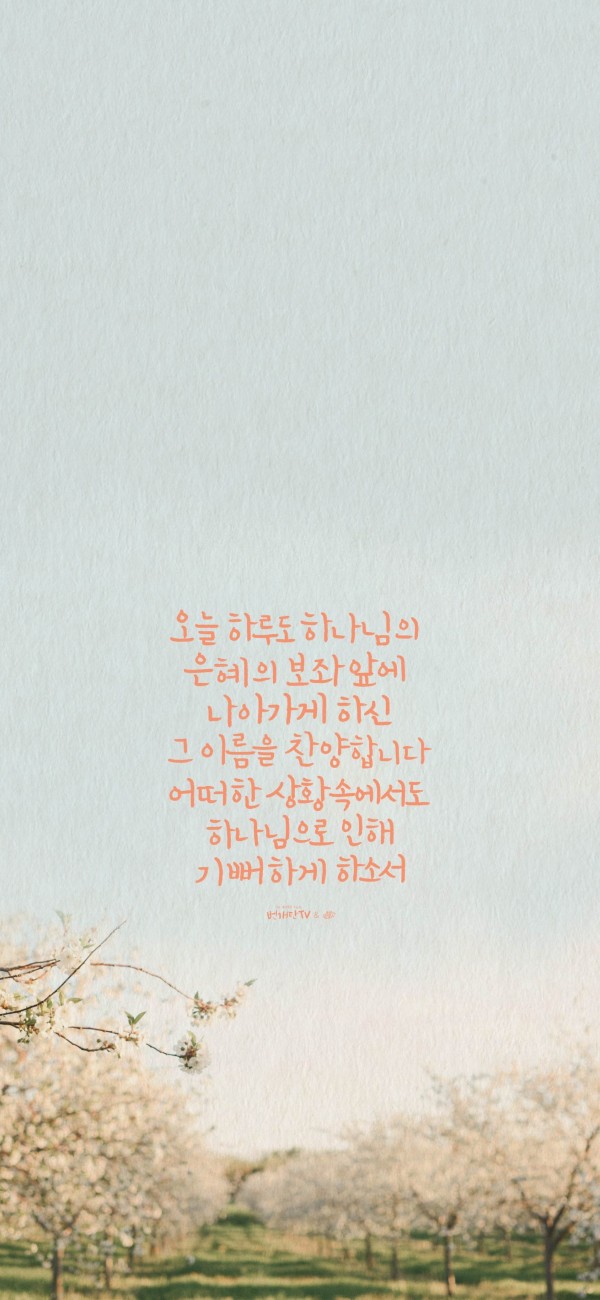 오늘 하루도 하나님의
은혜의 보좌 앞에
나아가게 하신
그 이름을 찬양합니다
어떠한 상황속에서도
하나님으로 인해
기뻐하게 하소서
번개탄TV &